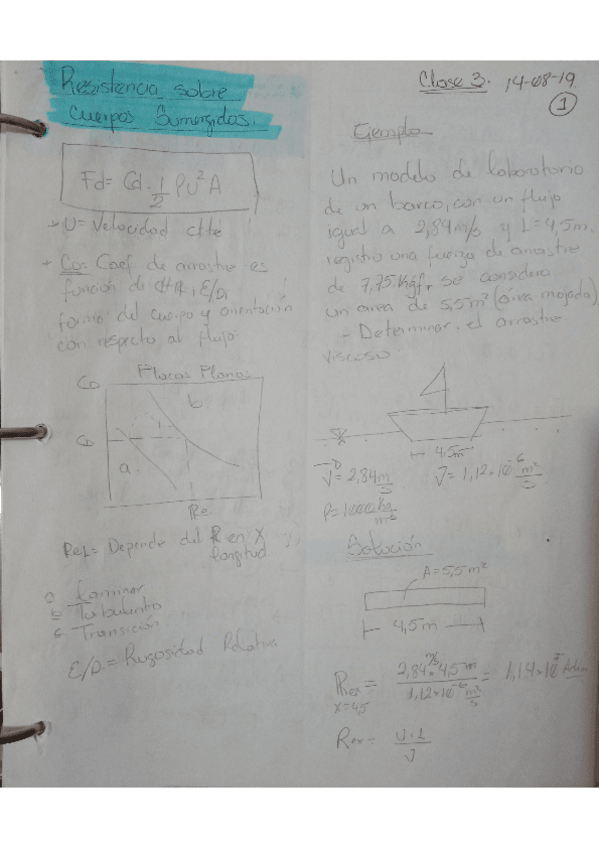 Resistencia sobre
Cuerpos Sumergidos.
Fd = Cd · 1/2 ρU²A
U = Velocidad ctte
CD: Coef de arrastre es
función de #R, E/D,
forma del cuerpo y orientación
con respecto al flujo.
Placas Planas
CD
b
CD
a
Re
ReL = Depende del R en X
longitud
a Laminar
b Turbulento
c Transición
E/D = Rugosidad Relativa
Clase 3. 14-08-19
1
Ejemplo
Un modelo de laboratorio
de un barco, con un flujo
igual a 2,84 m/s y L = 4,5m.
registró una fuerza de arrastre
de 7,75 Kgf. se considera
un area de 5,5m² (área mojada)
- Determinar, el arrastre
viscoso.
4,5m
V = 2,84 m/s
V = 1,12*10⁻⁶ m²/s
ρ = 1000 Kg/m³
Solución
A = 5,5 m²
4,5m
Rex = 2,84 m/s · 4,5m / 1,12*10⁻⁶ m²/s = 1,14*10⁷
X=4,5
Rex = U·L / V